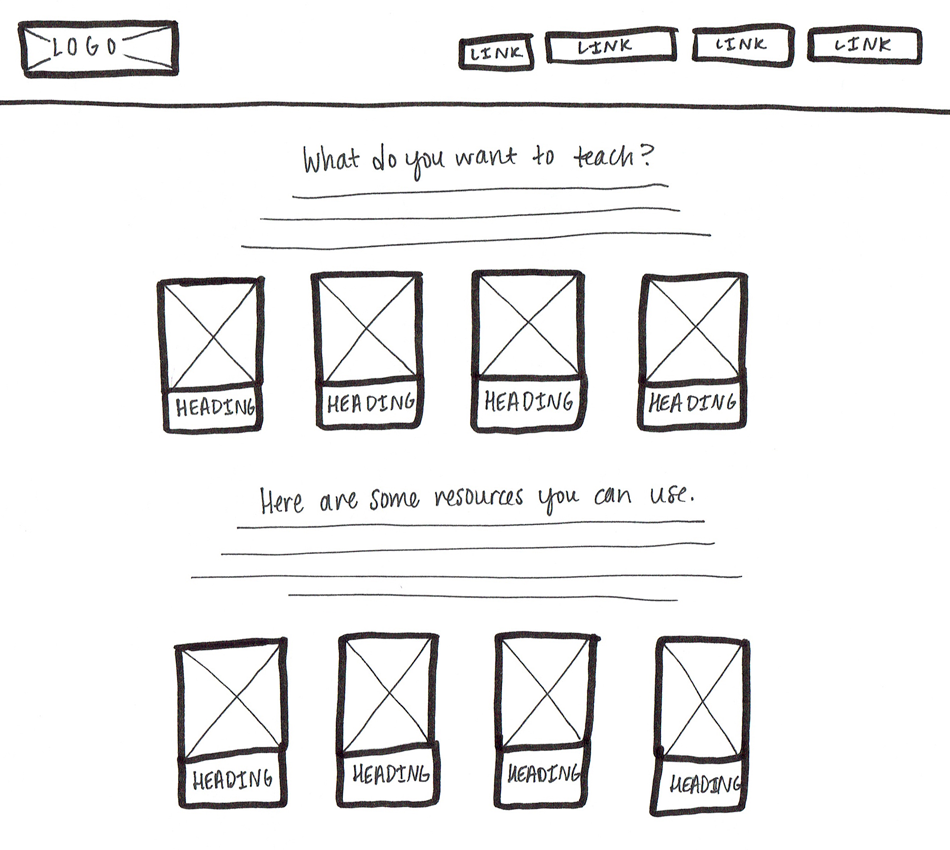 LOGO LINK LINK LINK LINK
What do you want to teach?
HEADING HEADING HEADING HEADING
Here are some resources you can use.
HEADING HEADING HEADING HEADING